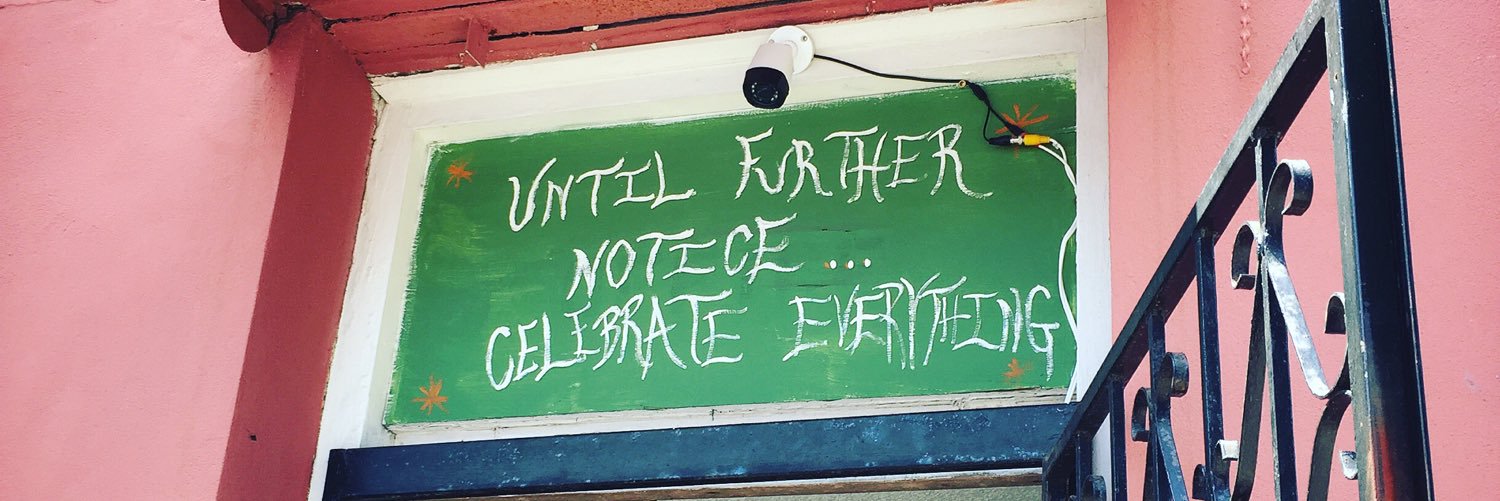 UNTIL FURTHER
NOTICE...
CELEBRATE EVERYTHING